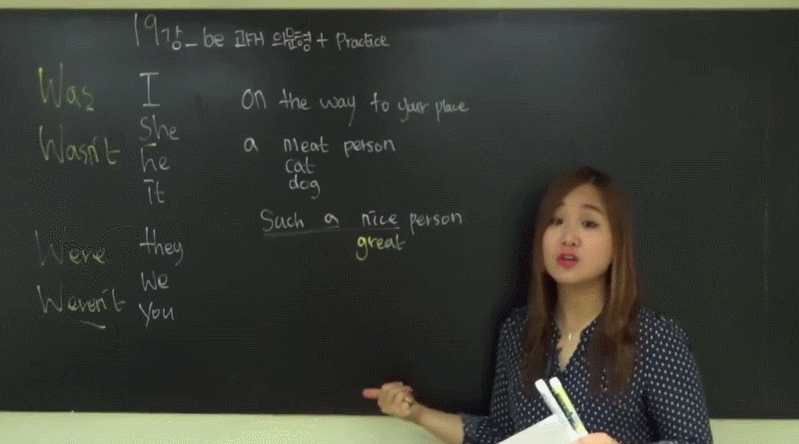 19강_be 과거 의문형 + Practice
Was I
Wasn't She
he
it
Were they
Weren't we
you
on the way to your place
a meat person
cat
dog
Such a nice person
great